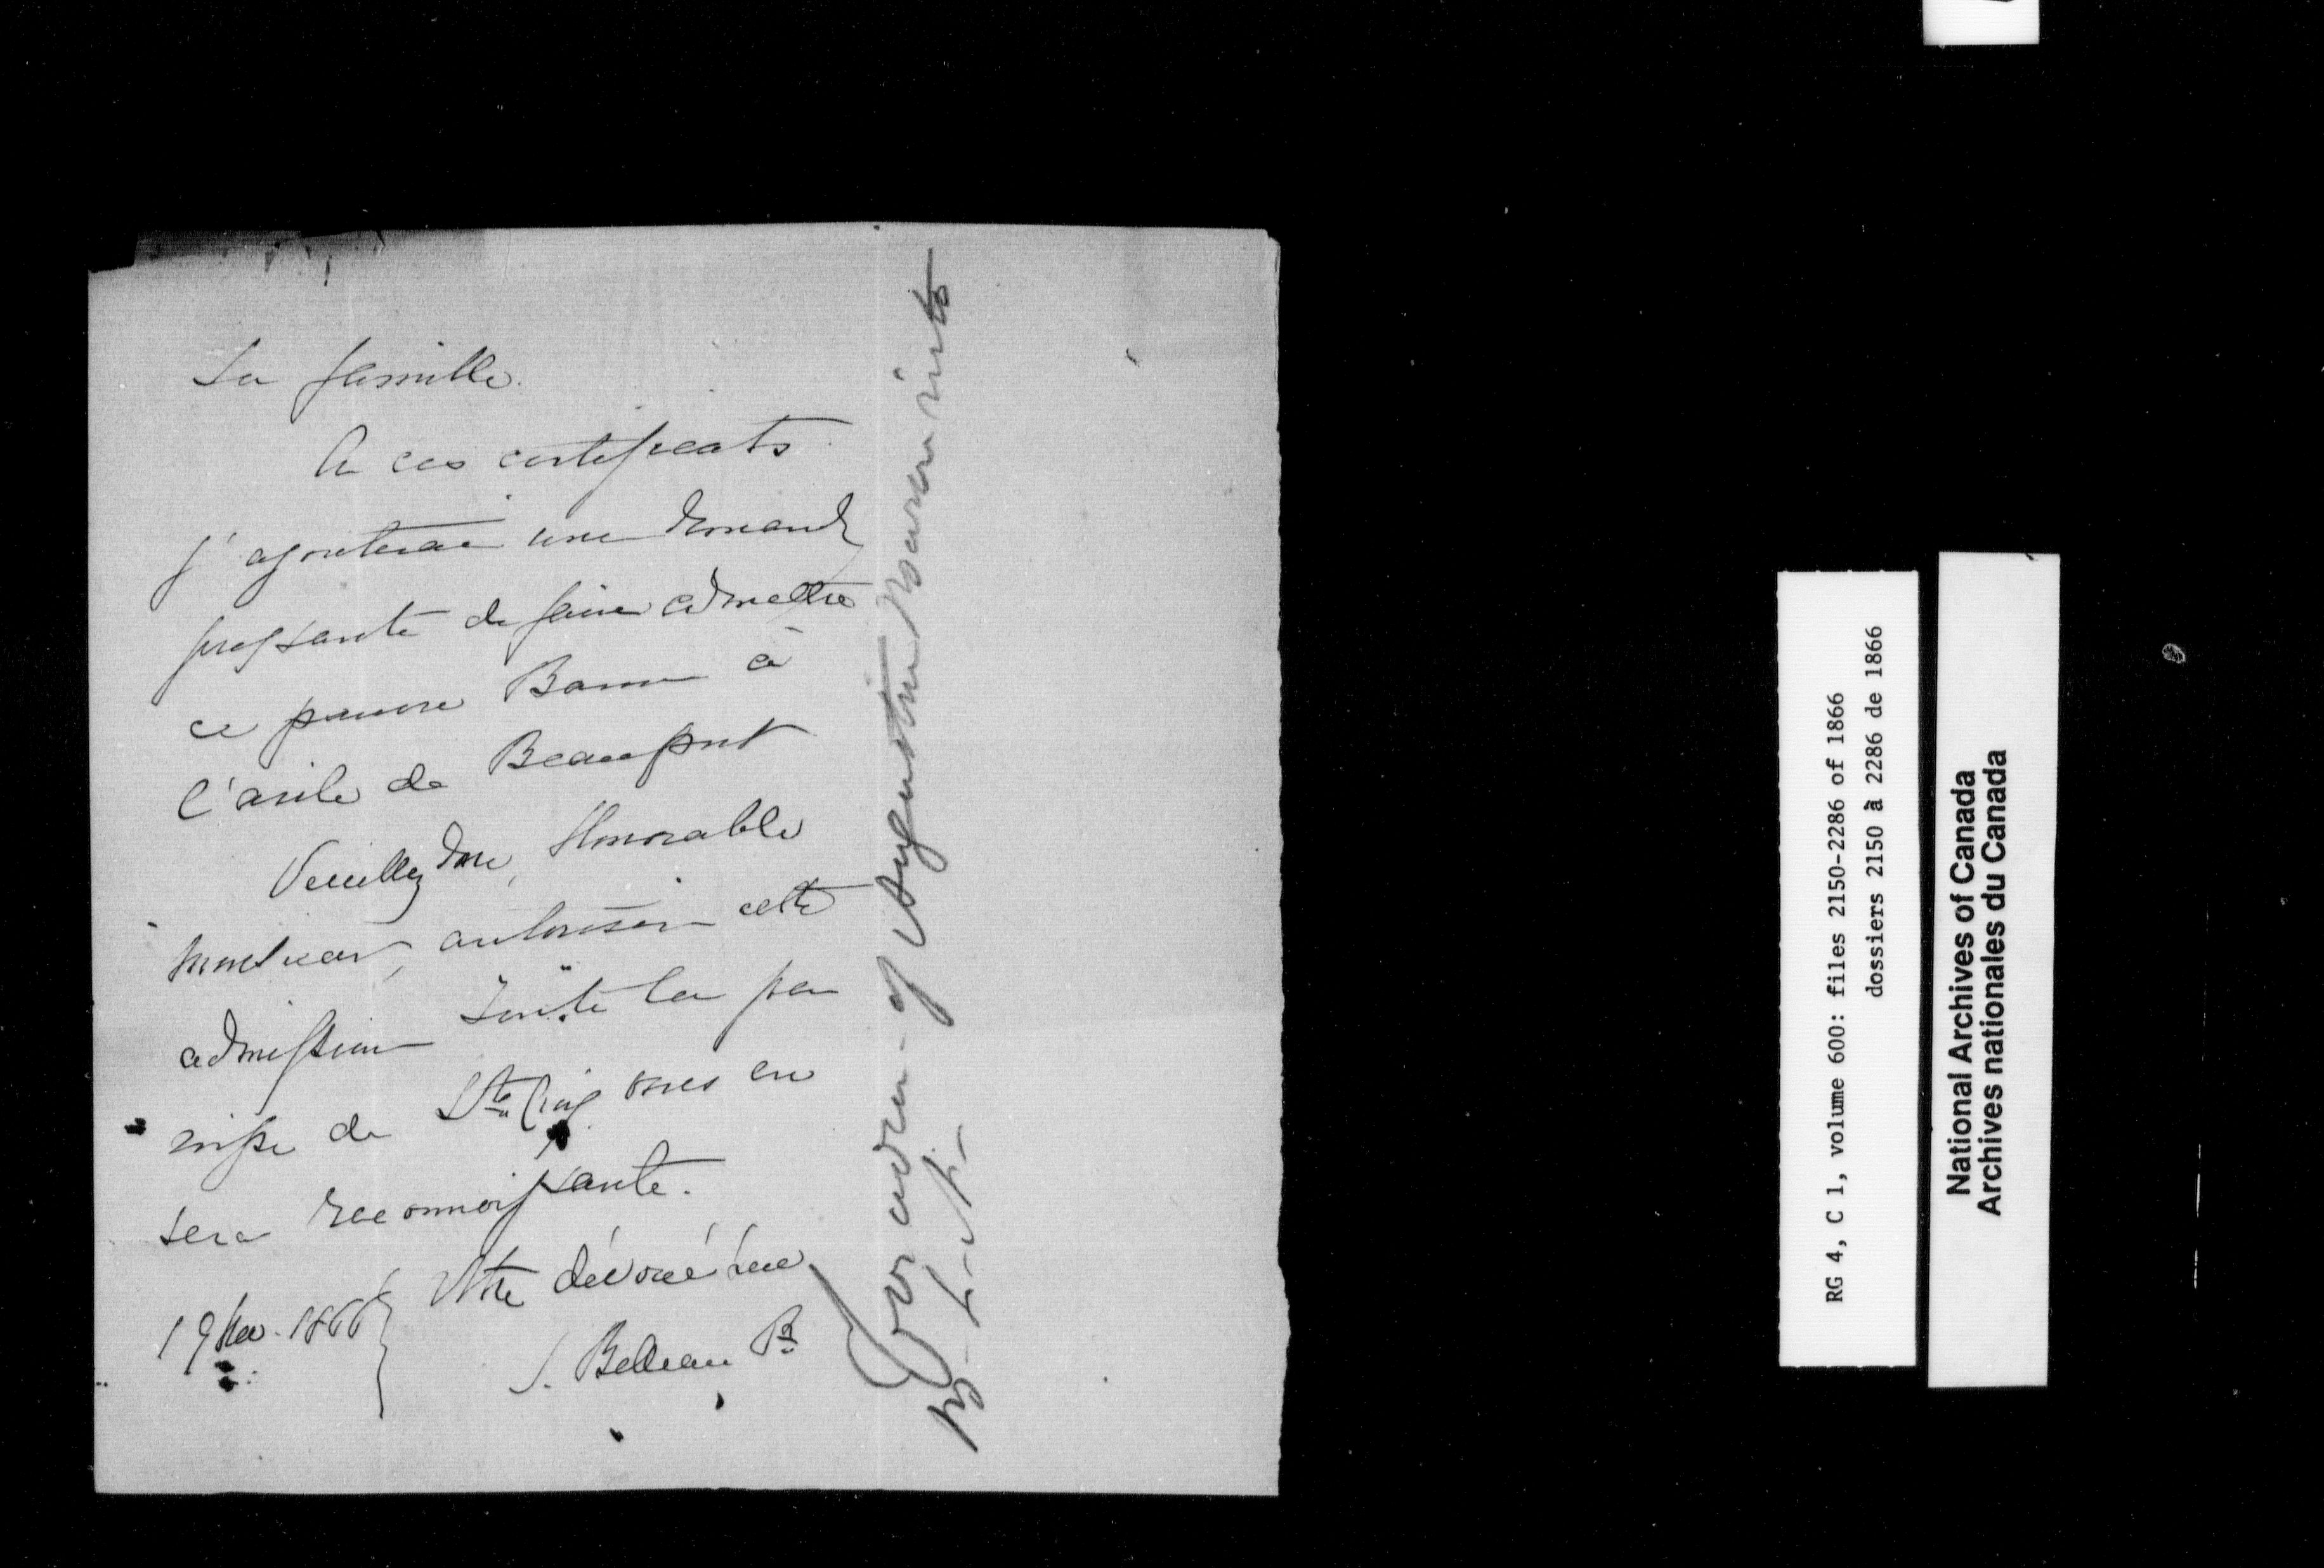 sa famille.
A ces certificats
j'ajouterai une demande
pressante de faire admettre
ce pauvre Baron à
l'asile de Beauport
Veuillez donc, Honorable
Monsieur, autoriser cette
admission Toute la pa
roisse de Ste Croix vous en
sera reconnoissante.
Votre dévoué
19 1866
J. Belleau Ptre
of Augustin
RG 4, C 1, volume 600: files 2150-2286 of 1866
dossiers 2150 à 2286 de 1866
National Archives of Canada
Archives nationales du Canada